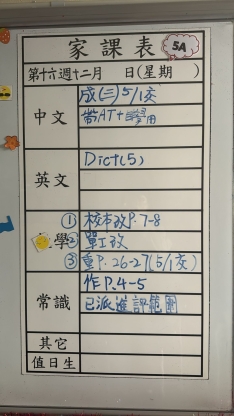 家課表 5A
第十六週十二月 日(星期 )
中文
成(三)5/1交
帶AT+
英文
Dict(5)
學
① 校本孜P.7-8
② 單工孜
③ 重P.26-27(5/1交)
常識
作P.4-5
已派進評範圍
其它
值日生